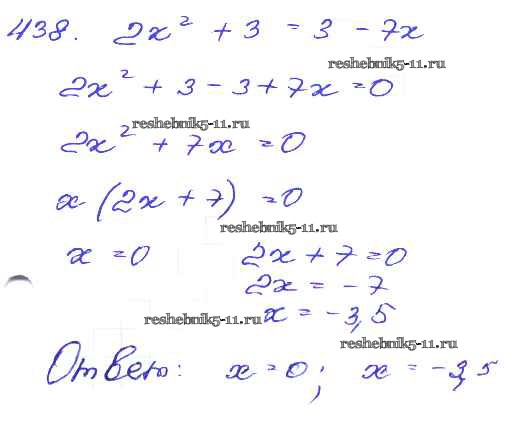 438. 2x² + 3 = 3 - 7x
reshebnik5-11.ru
2x² + 3 - 3 + 7x = 0
reshebnik5-11.ru
2x² + 7x = 0
x (2x + 7) = 0
reshebnik5-11.ru
x = 0 2x + 7 = 0
2x = - 7
reshebnik5-11.ru x = -3,5
reshebnik5-11.ru
Ответ: x = 0 ; x = -3,5